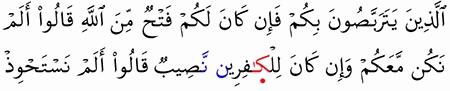 ٱلَّذِينَ يَتَرَبَّصُونَ بِكُمْ فَإِن كَانَ لَكُمْ فَتْحٌ مِّنَ ٱللَّهِ قَالُوٓا۟ أَلَمْ
نَكُن مَّعَكُمْ وَإِن كَانَ لِلْكَـٰفِرِينَ نَصِيبٌ قَالُوٓا۟ أَلَمْ نَسْتَحْوِذْ